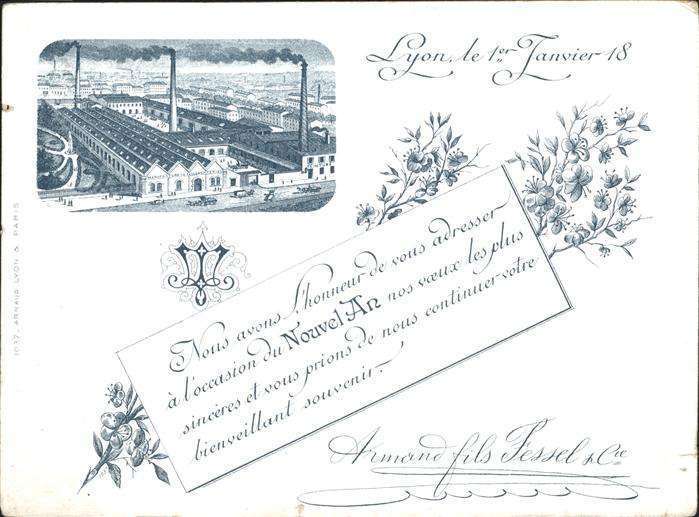 Lyon, le 1er Janvier 18
Nous avons l'honneur de vous adresser
à l'occasion du Nouvel An nos vœux les plus
sincères et vous prions de nous continuer votre
bienveillant souvenir.
Armand fils Fessel & Cie
1037, ARNAUD LYON & PARIS